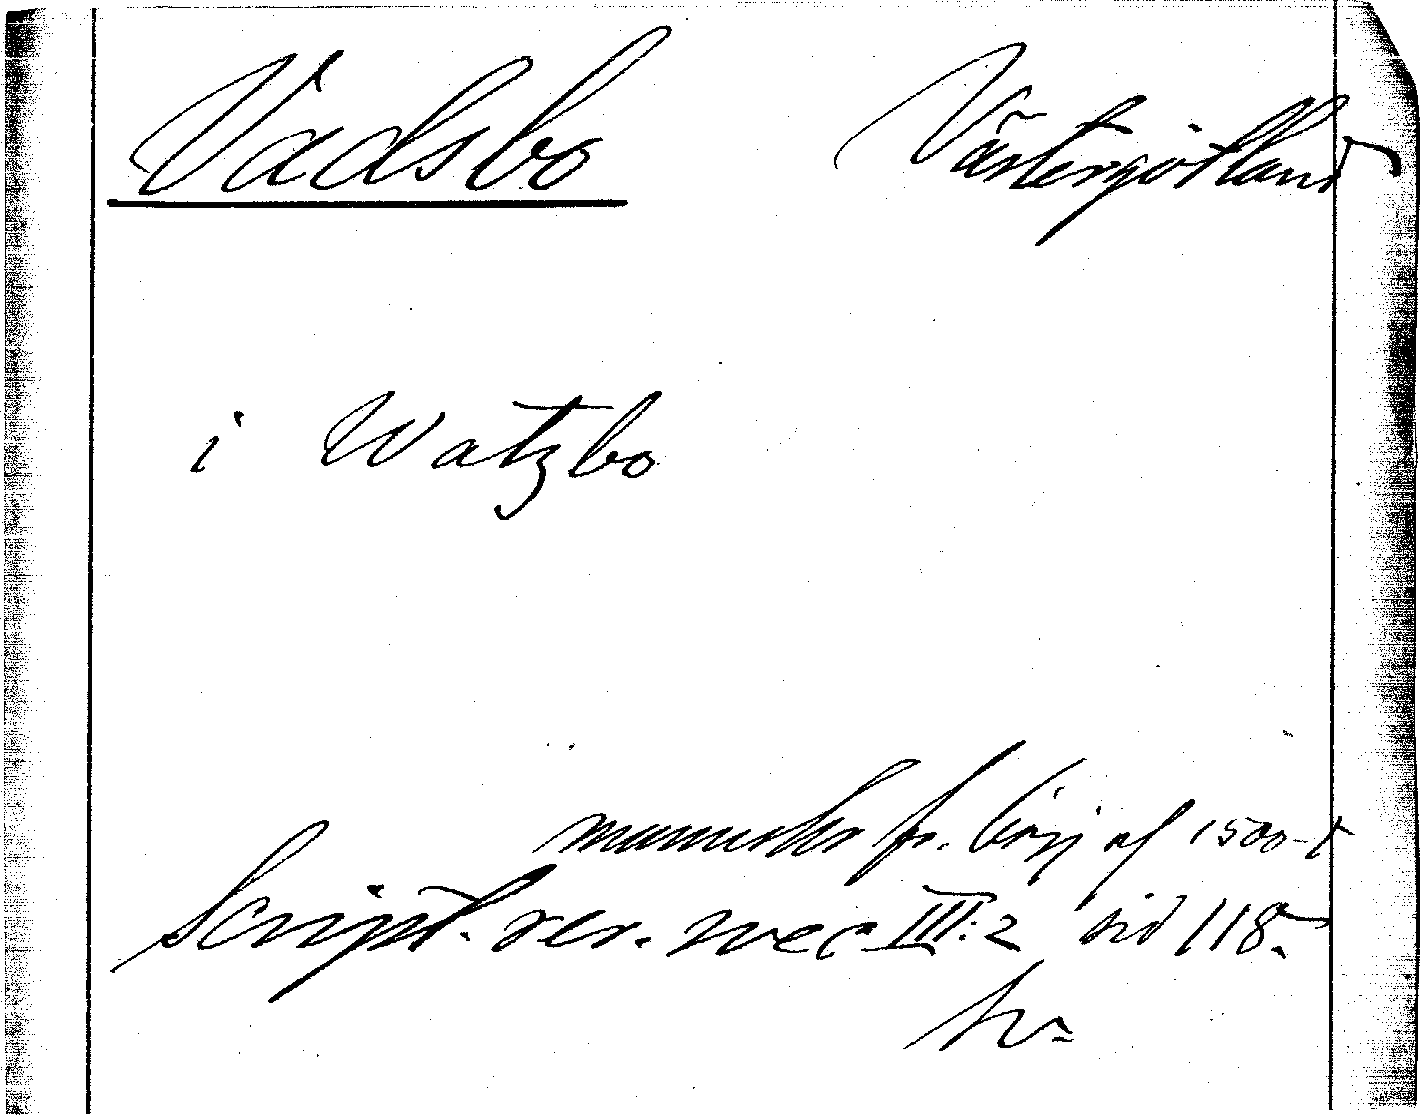 Vadsbo Västergötland
i Watzbo
manuskr fr. börj af 1500-t
Script. rer. svec III:2 sid 118.